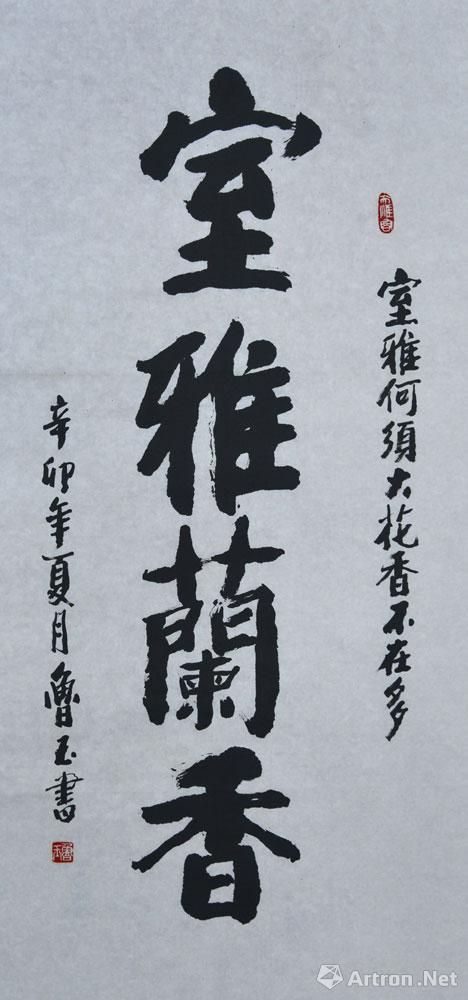 室雅何須大花香不在多
室雅蘭香
辛卯年夏月魯玉書
Artron.Net